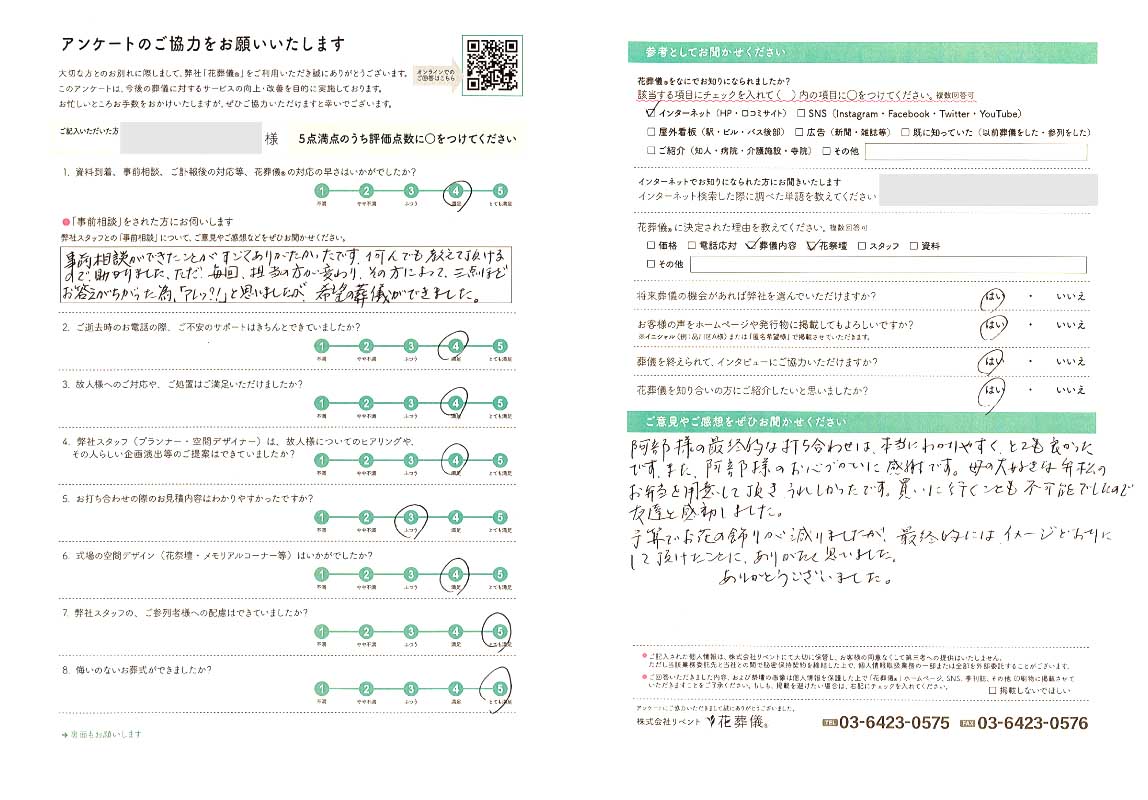 アンケートのご協力をお願いいたします
大切な方とのお別れに際しまして、弊社「花葬儀®」をご利用いただき誠にありがとうございます。
このアンケートは、今後の葬儀に対するサービスの向上・改善を目的に実施しております。
お忙しいところお手数をおかけいたしますが、ぜひご協力いただけますと幸いでございます。
オンラインでの
ご回答はこちら
ご記入いただいた方 様 5点満点のうち評価点数に○をつけてください
1. 資料到着、事前相談、ご訃報後の対応等、花葬儀®の対応の早さはいかがでしたか?
1 2 3 4 5
不満 やや不満 ふつう 満足 とても満足
●「事前相談」をされた方にお伺いします
弊社スタッフとの「事前相談」について、ご意見やご感想などをぜひお聞かせください。
事前相談ができたことがすごくありがたかったです。何んでも教えて頂ける
ので助かりました。ただ、毎回、担当の方が変わり、その方によって、三点ほど
お答えがちがった為、「アレっ?!」と思いましたが、希望の葬儀ができました。
2. ご逝去時のお電話の際、ご不安のサポートはきちんとできていましたか?
1 2 3 4 5
不満 やや不満 ふつう 満足 とても満足
3. 故人様へのご対応や、ご処置はご満足いただけましたか?
1 2 3 4 5
不満 やや不満 ふつう 満足 とても満足
4. 弊社スタッフ（プランナー・空間デザイナー）は、故人様についてのヒアリングや、
その人らしい企画演出等のご提案はできていましたか?
1 2 3 4 5
不満 やや不満 ふつう 満足 とても満足
5. お打ち合わせの際のお見積内容はわかりやすかったですか?
1 2 3 4 5
不満 やや不満 ふつう 満足 とても満足
6. 式場の空間デザイン（花祭壇・メモリアルコーナー等）はいかがでしたか?
1 2 3 4 5
不満 やや不満 ふつう 満足 とても満足
7. 弊社スタッフの、ご参列者様への配慮はできていましたか?
1 2 3 4 5
不満 やや不満 ふつう 満足 とても満足
8. 悔いのないお葬式ができましたか?
1 2 3 4 5
不満 やや不満 ふつう 満足 とても満足
→ 裏面もお願いします
参考としてお聞かせください
花葬儀®をなにでお知りになられましたか?
該当する項目にチェックを入れて（ ）内の項目に○をつけてください。複数回答可
☑ インターネット（HP・口コミサイト） □ SNS（Instagram・Facebook・Twitter・YouTube）
□ 屋外看板（駅・ビル・バス後部） □ 広告（新聞・雑誌等） □ 既に知っていた（以前葬儀をした・参列をした）
□ ご紹介（知人・病院・介護施設・寺院） □ その他
インターネットでお知りになられた方にお聞きいたします
インターネット検索した際に調べた単語を教えてください
花葬儀®に決定された理由を教えてください。複数回答可
□ 価格 □ 電話応対 ☑ 葬儀内容 ☑ 花祭壇 □ スタッフ □ 資料
□ その他
将来葬儀の機会があれば弊社を選んでいただけますか? はい ・ いいえ
お客様の声をホームページや発行物に掲載してもよろしいですか? はい ・ いいえ
※イニシャル（例：品川区A様）または「匿名希望様」で掲載させていただきます。
葬儀を終えられて、インタビューにご協力いただけますか? はい ・ いいえ
花葬儀を知り合いの方にご紹介したいと思いましたか? はい ・ いいえ
ご意見やご感想をぜひお聞かせください
阿部様の最終的な打ち合わせは、本当にわかりやすく、とても良かった
です。また、阿部様のお心づかいに感謝です。母の大好きな弁松の
お弁当を用意して頂き、うれしかったです。買いに行くことも不可能でしたので
友達と感動しました。
予算でお花の飾りが減りましたが、最終的には、イメージどおりに
して頂けたことに、ありがたく思いました。
ありがとうございました。
●ご記入された個人情報は、株式会社リベントにて大切に保管し、お客様の同意なくして第三者への提供はいたしません。
ただし当該業務委託先と当社との間で秘密保持契約を締結した上で、個人情報取扱業務の一部または全部を外部委託することがございます。
●ご回答いただきました内容、および祭壇の画像は個人情報を保護した上で「花葬儀®」ホームページ、SNS、季刊誌、その他印刷物に掲載させて
いただきますことをご了承ください。もしも、掲載を避けたい場合は、右記にチェックを入れてください。 □ 掲載しないでほしい
アンケートにご協力いただきまして誠にありがとうございました。
株式会社リベント 花葬儀® TEL 03-6423-0575 FAX 03-6423-0576